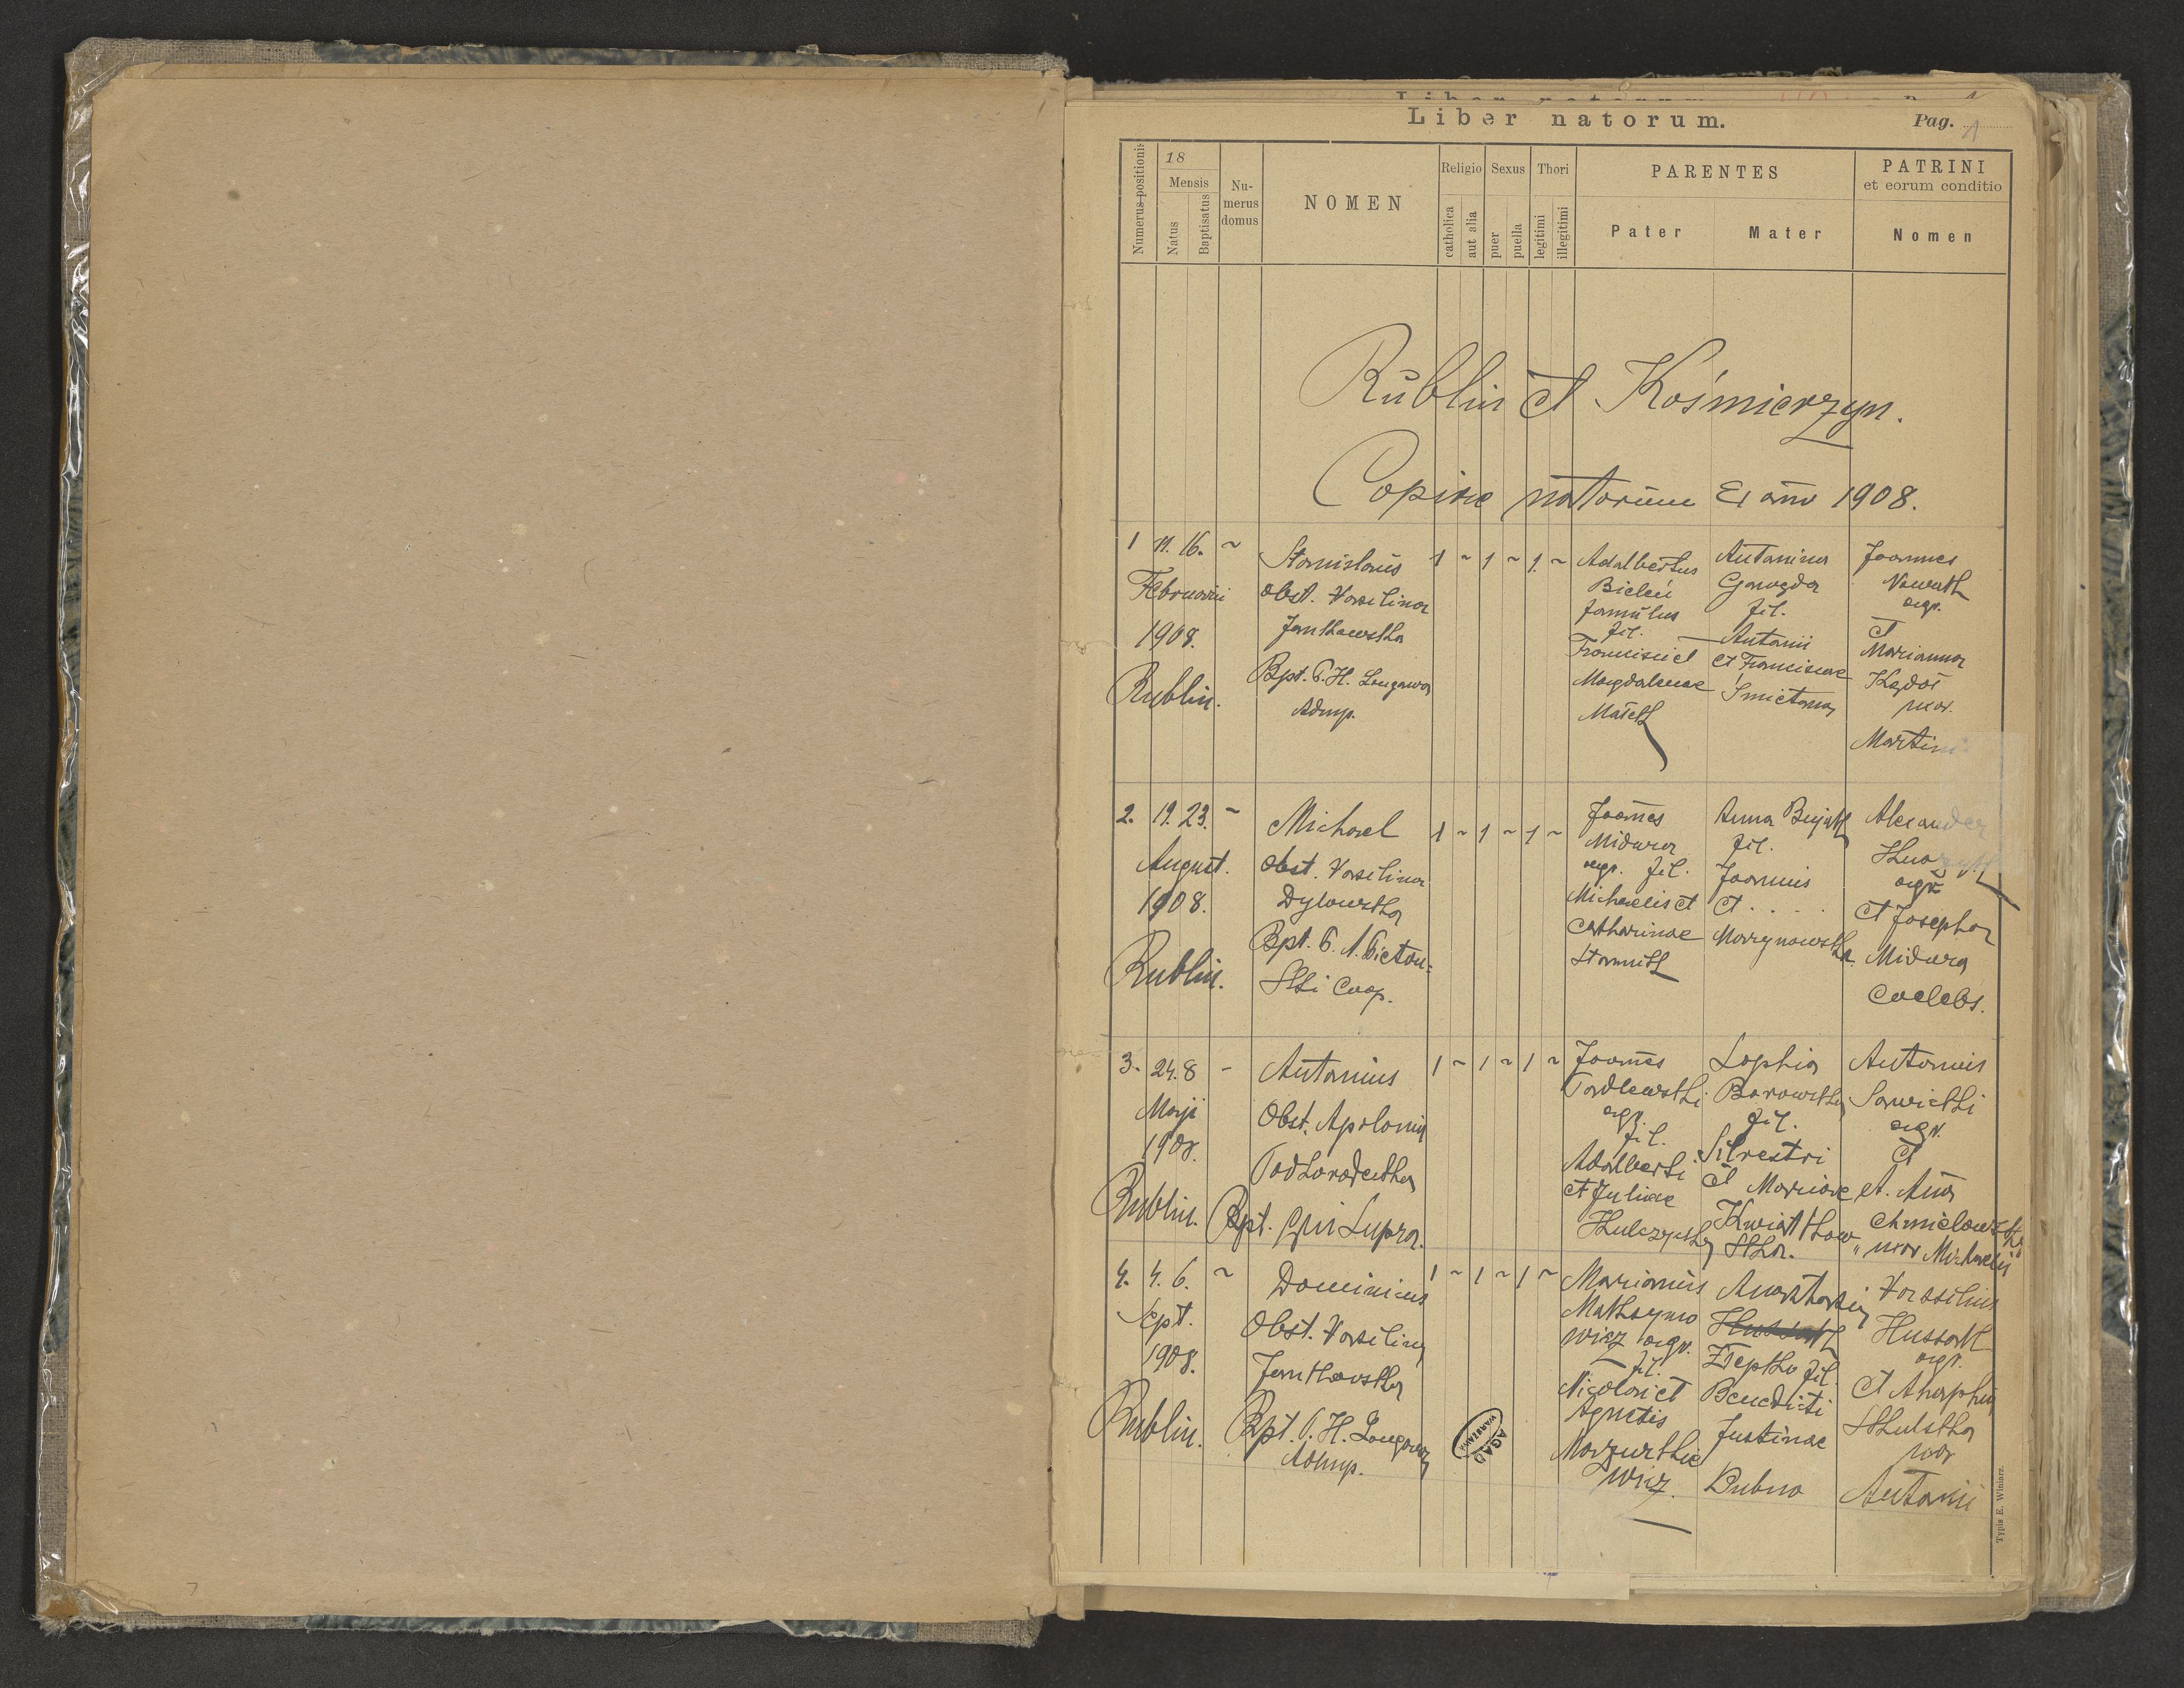 Liber natorum.
Pag. 1
Numerus positionis
18
Mensis
Natus
Baptisatus
Nu-
merus
domus
NOMEN
Religio
catholica
aut alia
Sexus
puer
puella
Thori
legitimi
illegitimi
PARENTES
Pater
Mater
PATRINI
et eorum conditio
Nomen
Rublin et Kośmierzyn.
Copiae natorum Ex anno 1908.
1 11. 16. ~
Februarii
1908.
Rublin.
Stanislaus
Obst. Vasilina
Jankowska
Bpt. P. H.
Admp.
1 ~ 1 ~ 1 ~
Adalbertus
Bieleń
famulus
fil.
Francisci et
Magdalenae
Antonina
fil.
Antonii
et Franciscae
Śmietana
Joannes
Nowak
agr.
et
Marianna
uxor.
Martini
2. 19. 23. ~
August.
1908.
Rublin.
Michael
Obst. Vasilina
Dylowska
Bpt. P. A. Pietrow=
ski Coop.
1 ~ 1 ~ 1 ~
Joannes
Midura
agr. fil.
Michaelis et
Catharinae
Anna Bujak
fil.
Joannis
et . . . .
Marynowska
Alexander
agr.
et Josepha
Midura
Coelebs.
3. 24. 8 -
Maji
1908.
Rublin.
Antonius
Obst. Apolonia
Podhorodecka
Bpt.
1 ~ 1 ~ 1 ~
Joannes
Podlewski
agr.
fil.
Adalberti
et Juliae
Skulczycka
Sophia
Borowska
fil.
Silvestri
et Mariae
Kwiatkow
ska.
Antonius
Sawicki
agr.
et
et. Anna
Chmielowska
uxor Michaelis
4. 4. 6. ~
Sept.
1908.
Rublin.
Dominicus
Obst. Vasilina
Jankowska
Bpt. P. H.
Admp.
1 ~ 1 ~ 1 ~
Marianus
Maksymo
wicz agr.
fil.
Nicolai et
Agnetis
Mazurkie
wicz.
Anastasia
fil.
Benedicti
Justinae
Dubno
Vassilius
Hussak
agr.
et Agaphia
Skulska
uxor
Antonii
AGAD
WARSZAWA
Typis E. Winiarz.